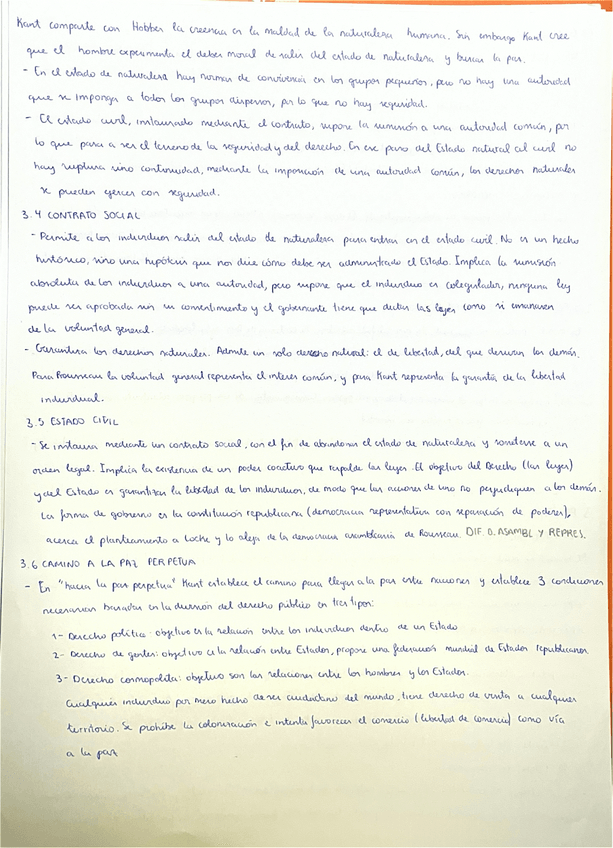 Kant comparte con Hobbes la creencia en la maldad de la naturaleza humana. Sin embargo Kant cree
que el hombre experimenta el deber moral de salir del estado de naturaleza y buscar la paz.
- En el estado de naturaleza hay normas de convivencia en los grupos pequeños, pero no hay una autoridad
que se imponga a todos los grupos dispersos, por lo que no hay seguridad.
- El estado civil, instaurado mediante el contrato, supone la sumisión a una autoridad común, por
lo que pasa a ser el terreno de la seguridad y del derecho. En ese paso del Estado natural al civil no
hay ruptura sino continuidad, mediante la imposición de una autoridad común, los derechos naturales
se pueden ejercer con seguridad.
3.4 CONTRATO SOCIAL
- Permite a los individuos salir del estado de naturaleza para entrar en el estado civil. No es un hecho
histórico, sino una hipótesis que nos dice cómo debe ser administrado el Estado. Implica la sumisión
absoluta de los individuos a una autoridad, pero supone que el individuo es colegislador, ninguna ley
puede ser aprobada sin su consentimiento y el gobernante tiene que dictar las leyes como si emanasen
de la voluntad general.
- Garantiza los derechos naturales. Admite un solo derecho natural: el de libertad, del que derivan los demás.
Para Rousseau la voluntad general representa el interés común, y para Kant representa la garantía de la libertad
individual.
3.5 ESTADO CIVIL
- Se instaura mediante un contrato social, con el fin de abandonar el estado de naturaleza y someterse a un
orden legal. Implica la existencia de un poder coactivo que respalde las leyes. El objetivo del Derecho (las leyes)
y del Estado es garantizar la libertad de los individuos, de modo que las acciones de uno no perjudiquen a los demás.
La forma de gobierno es la constitución republicana (democracia representativa con separación de poderes),
acerca el planteamiento a Locke y lo aleja de la democracia asamblearia de Rousseau. DIF. D. ASAMBL Y REPRES.
3.6 CAMINO A LA PAZ PERPETUA
- En "hacia la paz perpetua" Kant establece el camino para llegar a la paz entre naciones y establece 3 condiciones
necesarias basadas en la división del derecho público en tres tipos:
1- Derecho política: objetivo es la relación entre los individuos dentro de un Estado
2- Derecho de gentes: objetivo es la relación entre Estados, propone una federación mundial de Estados republicanos
3- Derecho cosmopolita: objetivo son las relaciones entre los hombres y los Estados.
Cualquier individuo por mero hecho de ser ciudadano del mundo, tiene derecho de visita a cualquier
territorio. Se prohíbe la colonización e intenta favorecer el comercio (libertad de comercio) como vía
a la paz